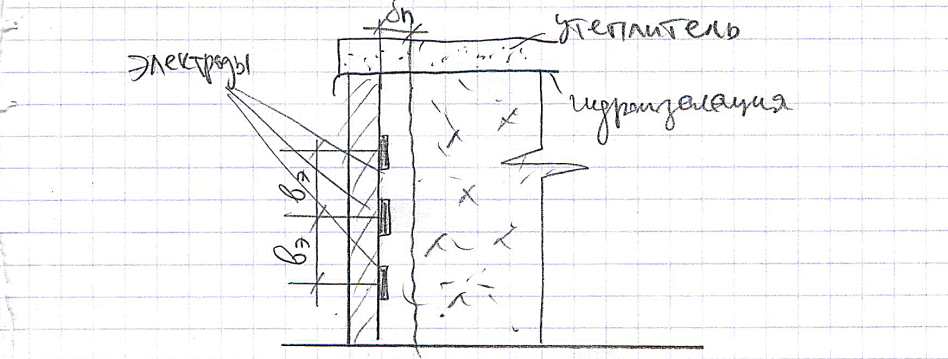 δп
утеплитель
электроды
гидроизоляция
bэ
bэ